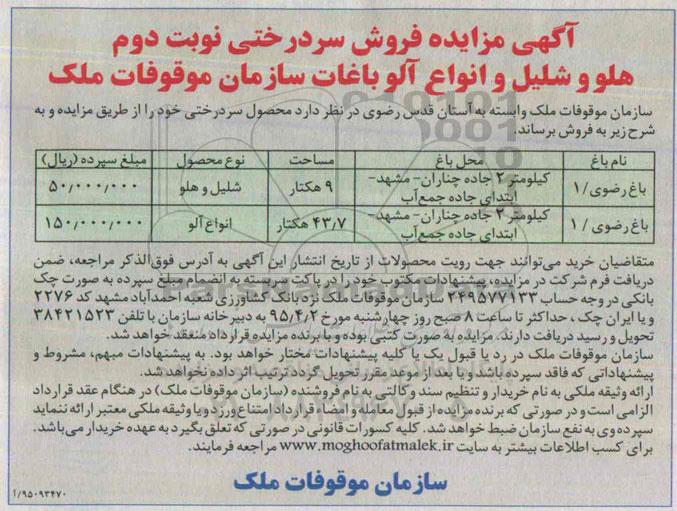 آگهی مزایده فروش سردرختی نوبت دوم
هلو و شلیل و انواع آلو باغات سازمان موقوفات ملک
سازمان موقوفات ملک وابسته به آستان قدس رضوی در نظر دارد محصول سردرختی خود را از طریق مزایده و به
شرح زیر به فروش برساند.
نام باغ محل باغ مساحت نوع محصول مبلغ سپرده (ریال)
باغ رضوی/ ۱ کیلومتر ۲ جاده چناران- مشهد- ابتدای جاده جمع‌آب ۹ هکتار شلیل و هلو ۵۰,۰۰۰,۰۰۰
باغ رضوی / ۱ کیلومتر ۲ جاده چناران- مشهد- ابتدای جاده جمع‌آب ۴۳٫۷ هکتار انواع آلو ۱۵۰,۰۰۰,۰۰۰
متقاضیان خرید می‌توانند جهت رویت محصولات از تاریخ انتشار این آگهی به آدرس فوق‌الذکر مراجعه، ضمن
دریافت فرم شرکت در مزایده، پیشنهادات مکتوب خود را در پاکت سربسته به انضمام مبلغ سپرده به صورت چک
بانکی در وجه حساب ۲۴۹۵۷۷۱۳۳ سازمان موقوفات ملک نزد بانک کشاورزی شعبه احمدآباد مشهد کد ۲۲۷۶
و یا ایران چک ، حداکثر تا ساعت ۸ صبح روز چهارشنبه مورخ ۹۵/۴/۲ به دبیرخانه سازمان با تلفن ۳۸۴۲۱۵۲۳
تحویل و رسید دریافت دارند. مزایده به صورت کتبی بوده و با برنده مزایده قرارداد منعقد خواهد شد.
سازمان موقوفات ملک در رد یا قبول یک یا کلیه پیشنهادات مختار خواهد بود. به پیشنهادات مبهم، مشروط و
پیشنهاداتی که فاقد سپرده باشد و یا بعد از موعد مقرر تحویل گردد ترتیب اثر داده نخواهد شد.
ارائه وثیقه ملکی به نام خریدار و تنظیم سند وکالتی به نام فروشنده (سازمان موقوفات ملک) در هنگام عقد قرارداد
الزامی است و در صورتی که برنده مزایده از قبول معامله و امضاء قرارداد امتناع ورزد و یا وثیقه ملکی معتبر ارائه ننماید
سپرده وی به نفع سازمان ضبط خواهد شد. کلیه کسورات قانونی در صورتی که تعلق بگیرد به عهده خریدار می‌باشد.
برای کسب اطلاعات بیشتر به سایت www.moghoofatmalek.ir مراجعه فرمایند.
سازمان موقوفات ملک
۹۵۰۹۳۴۷۰/آ